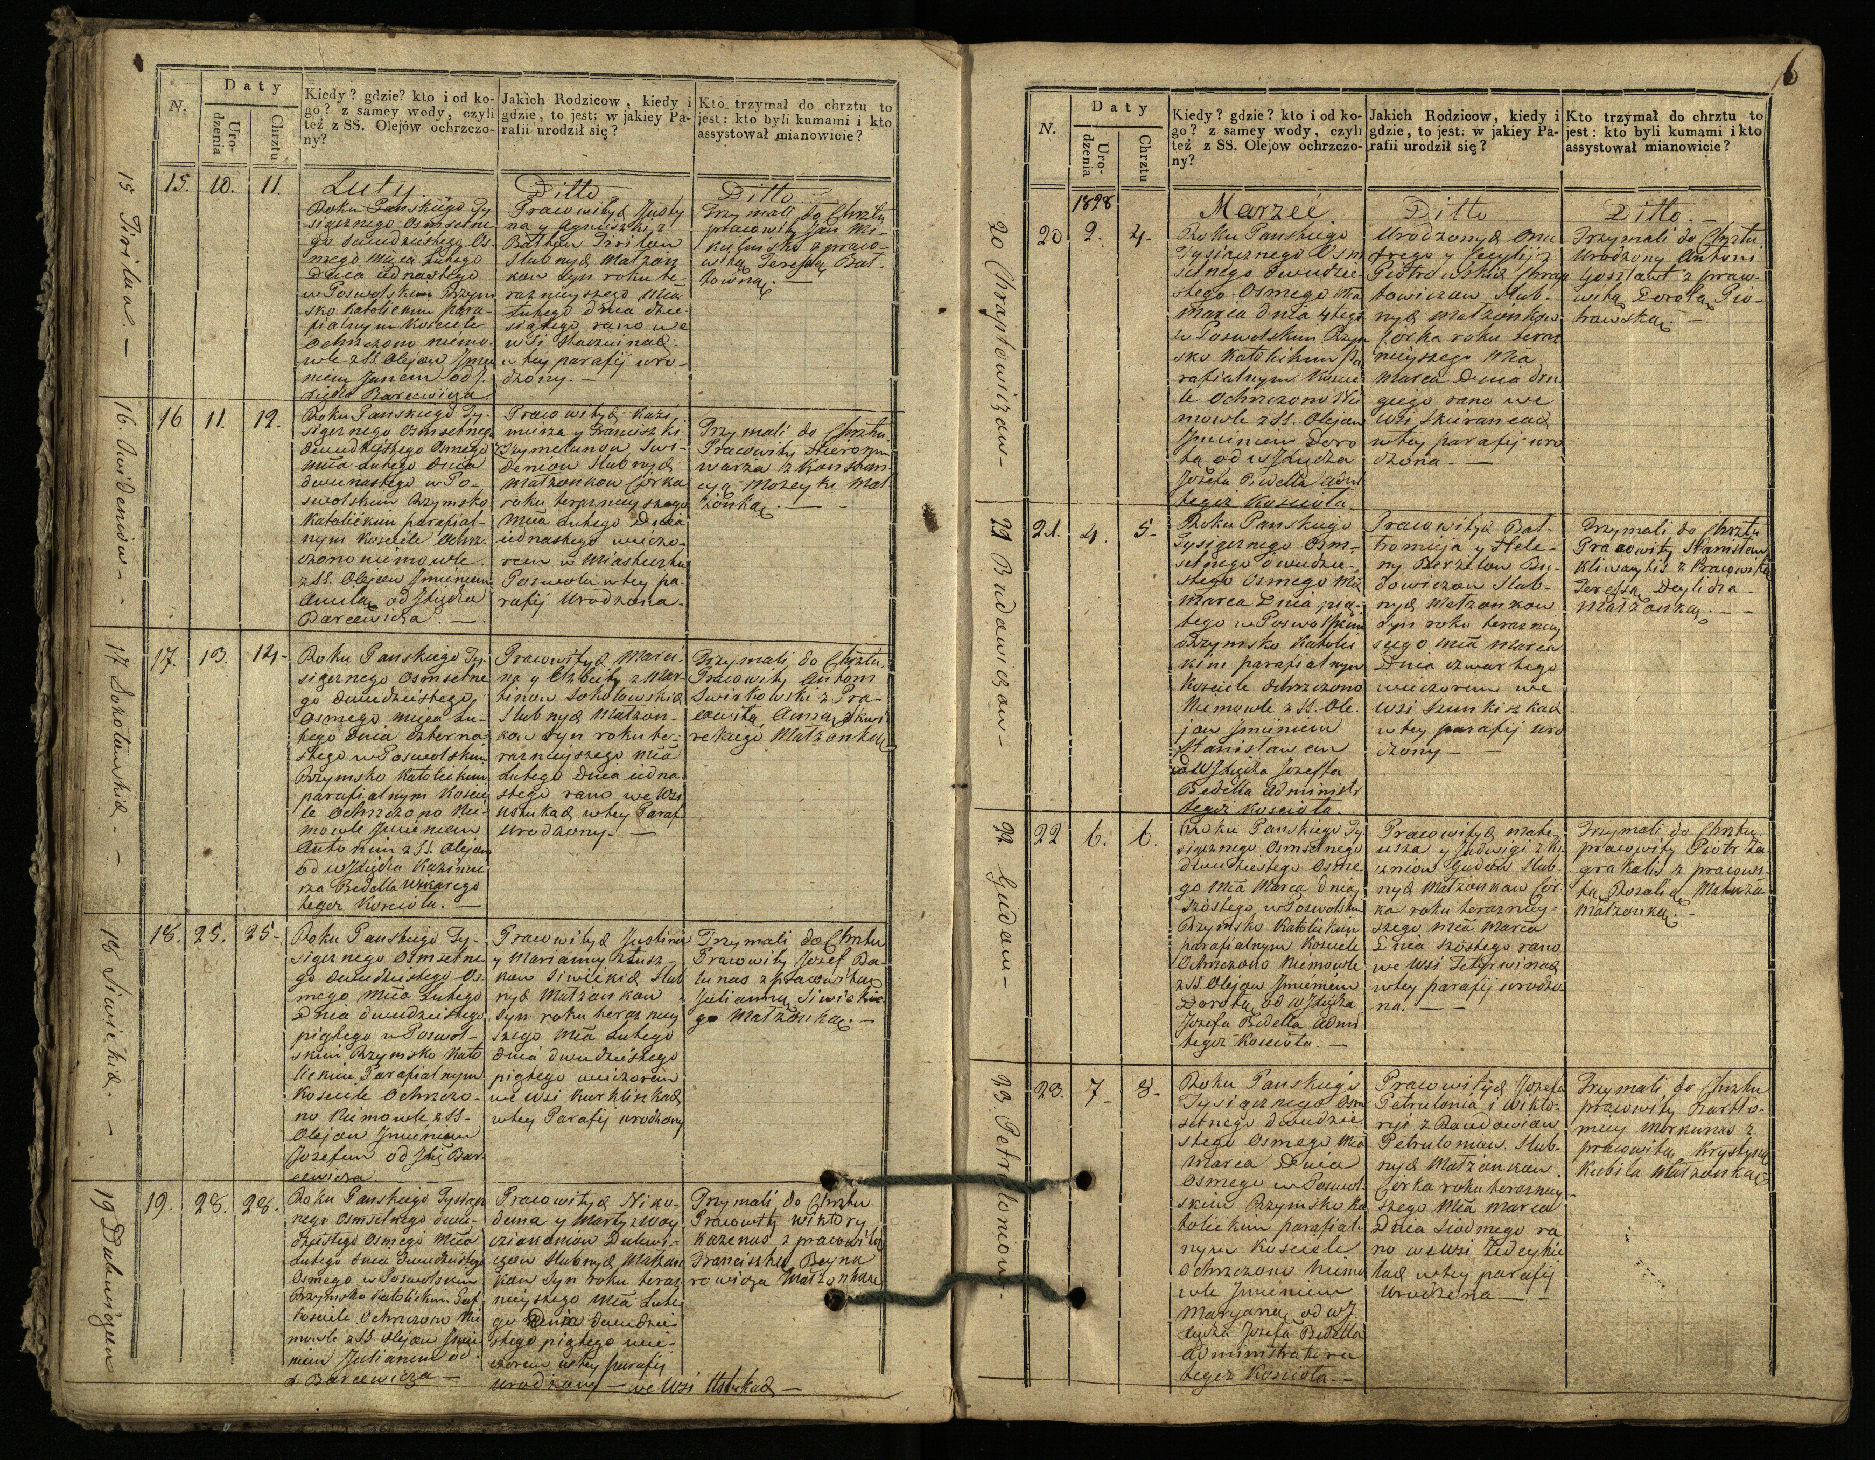 N.
Daty
Uro-
dzenia
Chrztu
Kiedy? gdzie? kto i od ko-
go? z samey wody, czyli
też z SS. Olejów ochrzczo-
ny?
Jakich Rodzicow, kiedy i
gdzie, to jest: w jakiey Pa-
rafii urodził się?
Kto trzymał do chrztu to
jest: kto byli kumami i kto
assystował mianowicie?
15. 10. 11.
Luty.
Roku Panskiego Ty-
sięcznego Osmsetne-
go dwudziestego Os-
mego Mca Lutego
Dnia iednastego
w Poswolskim Rzym
sko Katolickim Para-
fialnym Kosciele
Ochrzczono niemo-
wle z SS. Olejow Jmie
niem Janem od J.
Xiędza Barcewicza
Ditto
Pracowitych Justy
na y Agnieszki z
Słubnych Małzon
kow Syn roku te-
raznieyszego Mca
Lutego dnia dzie-
siątego rano we
w tey parafij uro-
dzony.
Ditto
Trzymali do Chrztu
pracowity Jan Mi-
z praco-
witą Teressą Bał-
16 11. 12.
Roku Panskiego Ty-
sięcznego Osmsetnego
dwudziestego Osmego
Mca Lutego Dnia
dwunastego w Po-
swolskim Rzymsko
Katolickim parafial-
nym Kosciele Ochrz-
czono niemowle
z SS. Olejow Jmieniem
od Xiędza
Barcewicza.
Pracowitych Kazi
mierza y Franciszki
Słubnych
Małzonkow Corka
roku teraznieyszego
Mca Lutego Dnia
iednastego wieczo-
rem w Miasteczku
Poswolu w tey pa-
rafij Urodzona.
Trzymali do Chrztu
Pracowity Hieronim
z Konstan
cyą Mozeyki Mał
żonką.
17. 13. 14.
Roku Panskiego Ty-
sięcznego Osmsetne
go dwudziestego
Osmego Mca Lu-
tego Dnia czterna-
stego w Poswolskim
Rzymsko Katolickim
parafialnym Koscie
le Ochrzczono Nie-
mowle Jmieniem
Antonim z SS. Olejow
od W. Xiędza Kazimie
rza Bedella Wikarego
tegoz Kosciola.
Pracowitych Marci-
na y Elżbiety z Mar-
tinow Sokołowskich
Słubnych Małzon-
kow Syn roku te-
raznieyszego Mca
Lutego Dnia iedna
stego rano we Wsi
w tey Paraf
Urodzony.
Trzymali do Chrztu
Pracowity Antoni
z Pra-
cowitą Anną
Małzonką
18. 25. 25.
Roku Panskiego Ty-
sięcznego Osmsetne
go dwudziestego Os-
mego Mca Lutego
Dnia dwudziestego
piątego w Poswol-
skim Rzymsko Kato
lickim Parafialnym
Kosciele Ochrzczo-
no Niemowle z SS.
Olejow Jmieniem
Jozefem od Xię. Bar-
cewicza
Pracowitych Justina
y Marianny
kow Siwickich Słub
nych Małzonkow
Syn roku terazniey
szego Mca Lutego
dnia dwudziestego
piątego wieczorem
we wsi Kurkliszkach
w tey Parafij urodzony
Trzymali do Chrztu
Pracowity Jozef Ba-
lunas z pracowitą
Julianną Siwickie
go Małżonką.
19. 28. 28.
Roku Panskiego Tysięcz
nego Osmsetnego dwu-
dziestego Osmego Mca
Lutego dnia dwudziestego
Osmego w Poswolskim
Rzymsko Katolickim Par
Kosciele Ochrzczono Nie
mowle z SS Olejow Jmie
niem Julianem od
X Barcewicza
Pracowitych Niko-
dema y Marty z Woy
Słubnych Małzon
kow Syn roku teraz
nieyszego Mca Lute
go Dnia dwudzie
stego piątego wie-
czorem w tey parafij
urodzony — we Wsi
Trzymali do Chrztu
Pracowity Wiktory
Kazenas z pracowitą
Franciszką
Małżonką
15 Tirilow.
16. Swideniow
17 Sokołowskich
18 Siwickich.
6
N.
Daty
Uro-
dzenia
Chrztu
Kiedy? gdzie? kto i od ko-
go? z samey wody, czyli
też z SS. Olejow ochrzczo-
ny?
Jakich Rodzicow, kiedy i
gdzie, to jest: w jakiey Pa-
rafii urodził się?
Kto trzymał do chrztu to
jest: kto byli kumami i kto
assystował mianowicie?
1828
20 2. 4.
Marzec.
Roku Panskiego
Tysięcznego Osm
setnego dwudzie-
stego Osmego Mca
Marca dnia 4tego
w Poswolskim Rzym
sko Katolickim Pa
rafialnym Koscie
le Ochrzczono Nie
mowle z SS. Olejow
Jmieniem Doro
tą od W Xiędza
Jozefa Bedella Adm
tegoż Kosciola.
Ditto
Urodzonych Onu
frego y Cecylij z
Piotrowskich Chrap
towiczow Słub-
nych Małzonkow
Corka roku teraz
nieyszego Mca
Marca Dnia dru
giego rano we
Wsi
w tey parafij uro
dzona.
Ditto
Trzymali do Chrztu
Urodzony Antoni
z praco-
witą Dorotą Pio-
trowską.
21. 4. 5.
Roku Panskiego
Tysięcznego Osm-
setnego dwudzie-
stego Osmego Mca
Marca Dnia pią-
tego w Poswolskim
Rzymsko Katolic
kim parafialnym
Kosciele Ochrzczono
Niemowle z SS. Ole-
jow Jmieniem
Stanisławem
od W Xiędza Jozeffa
Bedella Administr
tegoz Kosciola.
Pracowitych Bał-
tromieja y Hele-
ny Bu-
dowiczow Słub-
nych Małzonkow
Syn roku teraźniey
szego Mca Marca
Dnia czwartego
wieczorem we
wsi
w tey parafij uro
dzony
Trzymali do Chrztu
Pracowity Stanisław
z Pracowitą
Teressą
Małżonką.
22 6. 6.
Roku Panskiego Ty-
sięcznego Osmsetnego
dwudziestego Osme-
go Mca Marca dnia
szostego w Poswolskim
Rzymsko Katolickim
parafialnym Kosciele
Ochrzczono Niemowle
z SS. Olejow Jmieniem
Dorotą od W Xiędza
Jozefa Bedella Admi
tegoz Kosciola.
Pracowitych Mate-
usza y Jadwigi
Słub-
nych Małzonkow Cor-
ka roku terazniey-
szego Mca Marca
Dnia szostego rano
we Wsi
w tey parafij urodzo
na.
Trzymali do Chrztu
pracowity Piotr Za-
grakalis z pracowi-
tą Rozalią
Małżonką.
23. 7. 8.
Roku Panskiego
Tysięcznego Osm
setnego dwudzie
stego Osmego Mca
Marca Dnia
Osmego w Poswol-
skim Rzymsko Ka
tolickim parafial-
nym Kosciele
Ochrzczono Niemo
wle Jmieniem
Maryanną od W J
Xiędza Jozefa Bedella
Administratora
tegoz Kosciola.
Pracowitych Jozefa
Petrulonia i Wikto-
ryi z
Petrulonow Słub-
nych Małżonkow
Corka roku teraźniey-
szego Mca Marca
Dnia siodmego ra
no we wsi
w tey parafij
Urodzona
Trzymali do Chrztu
pracowity Bartło-
miey Morkunas z
pracowitą Krystyną
Kubila Małżonką
20 Chraptowiczow
21 Budowiczow
23. Petrulonow